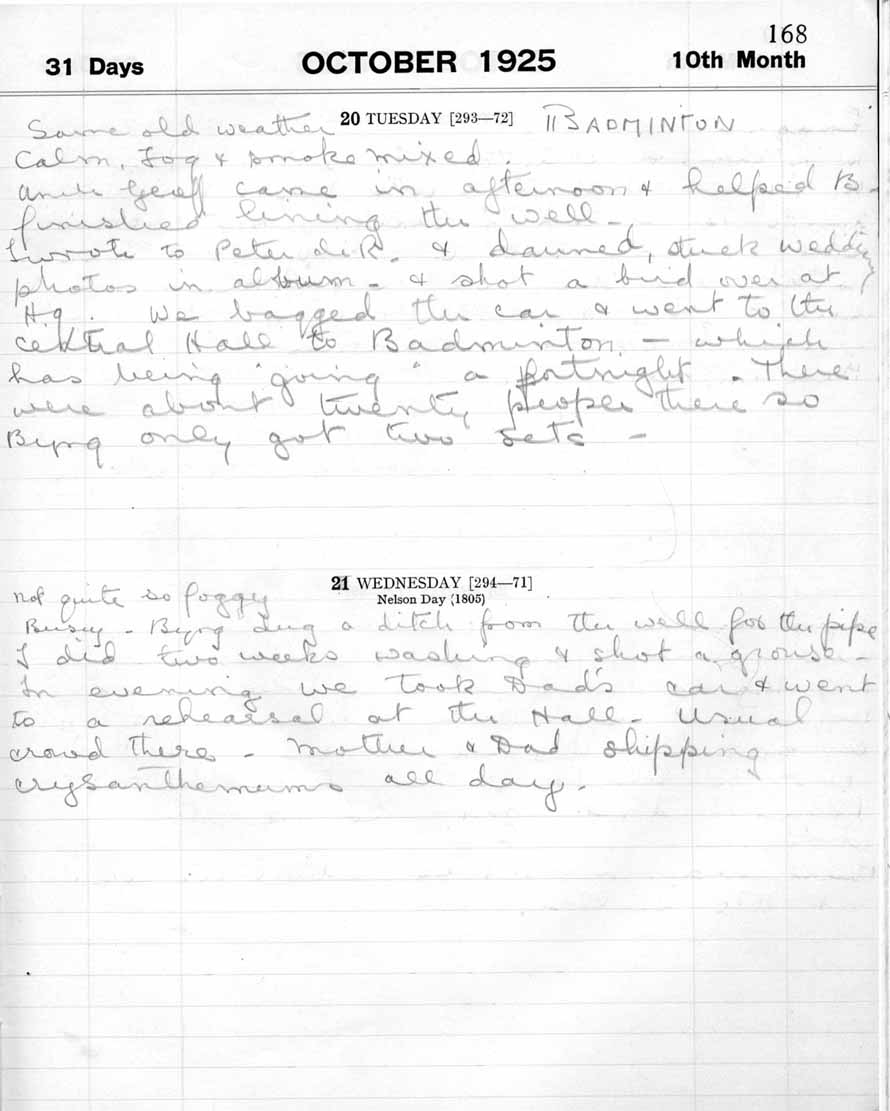 168
31 Days OCTOBER 1925 10th Month
20 TUESDAY [293—72] BADMINTON
Same old weather
Calm, Fog & smoke mixed.
Uncle Geoff came in afternoon & helped B-
finished lining the well -
I wrote to Peter & darned, stuck wedding
photos in album - & shot a bird over at
H.q. We bagged the car & went to the
central Hall to Badminton - which
has being "going" a fortnight. There
were about twenty people there so
Byng only got two sets -
21 WEDNESDAY [294—71]
Nelson Day (1805)
not quite so foggy
Busy - Byng dug a ditch from the well for the pipe
I did two weeks washing & shot a grouse -
In evening we took Dad's car & went
to a rehearsal at the Hall - Usual
crowd there - Mother & Dad shipping
crysanthemums all day.